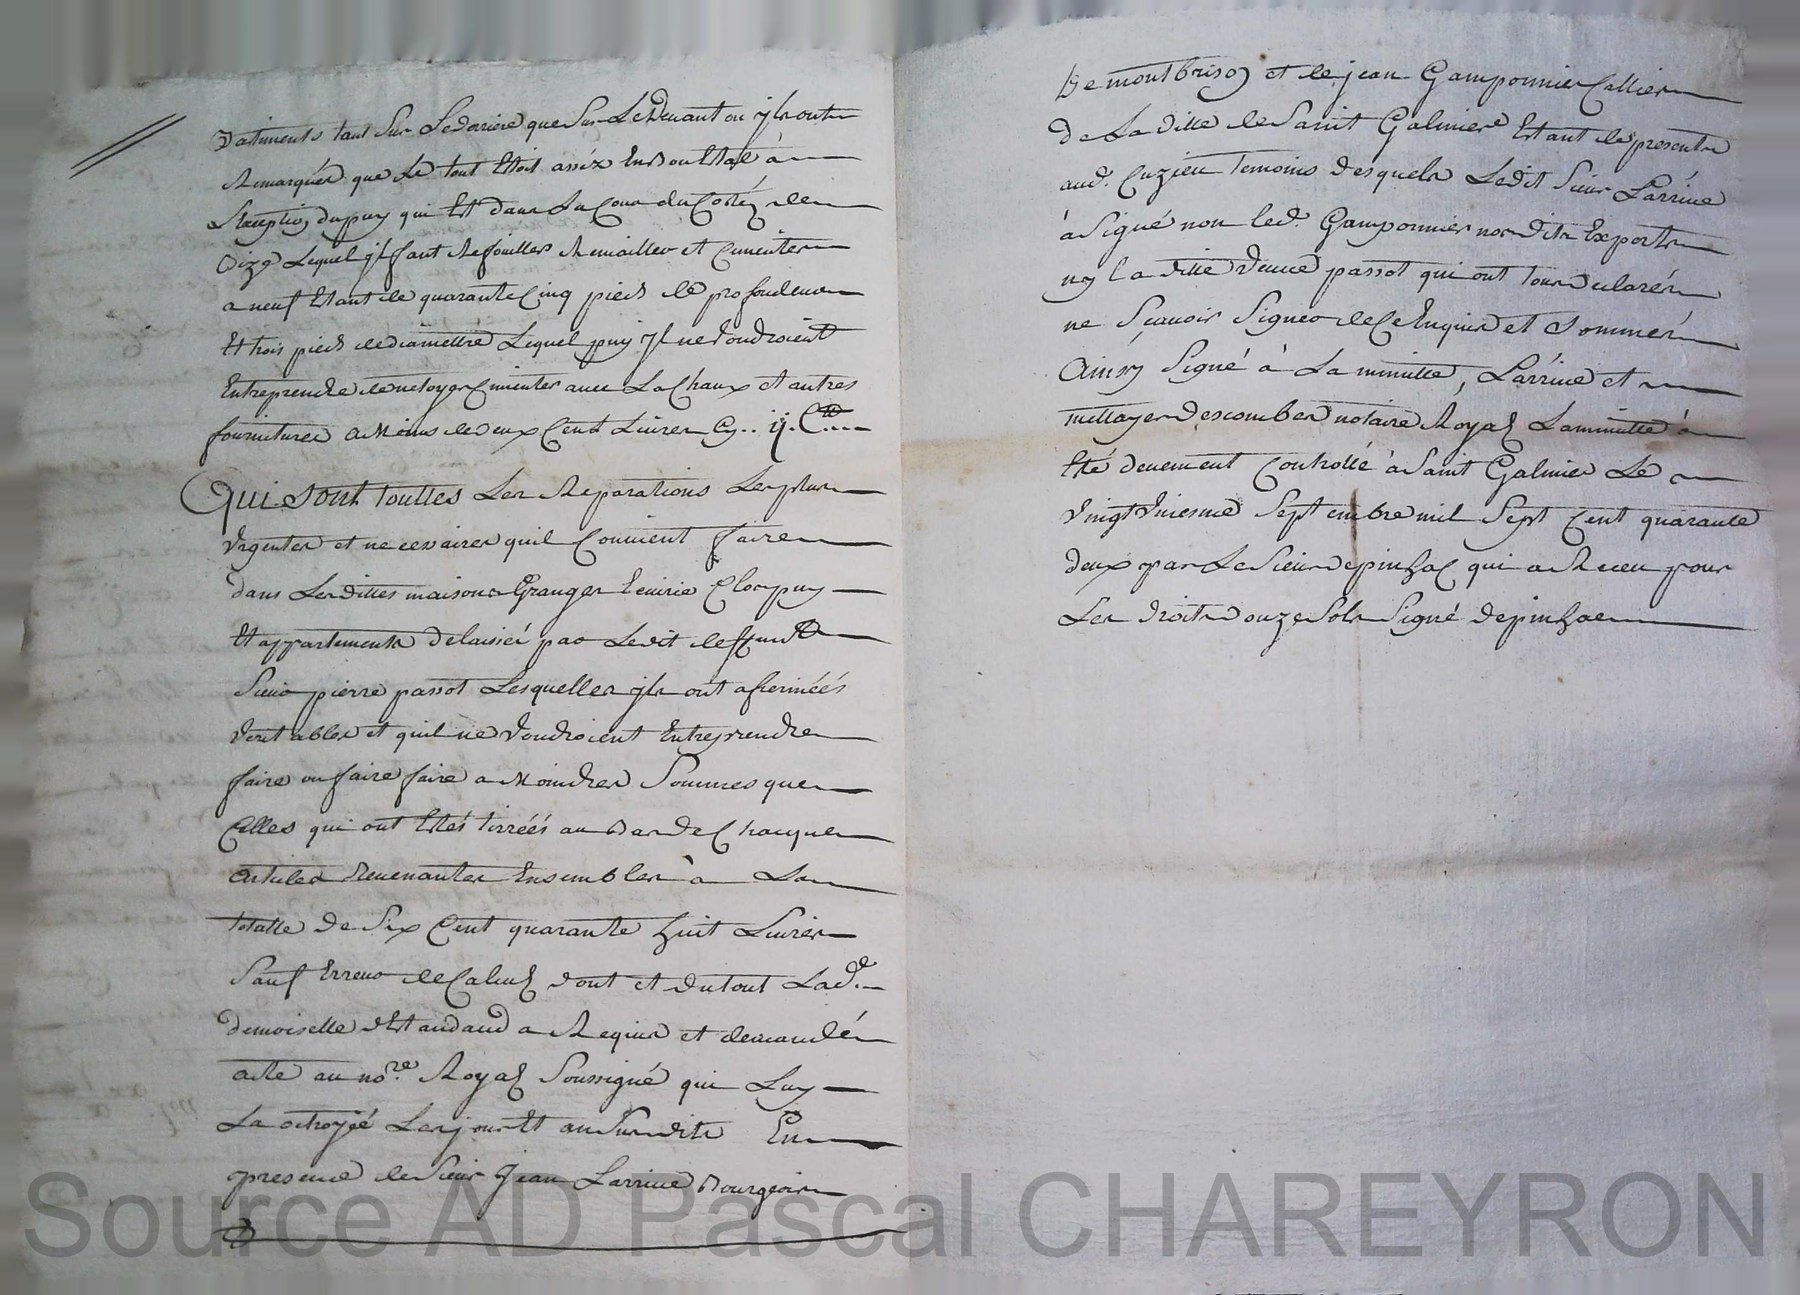 Batiments tant Sur Le derriere que Sur Le Devant ou jls ont
Remarqués que Le tout Etoit asséz En Bon Etat à
L'Exeption du puy qui Est dans La Cour du Cotéz de
Bize Lequel jl faut Refouiller Remailler et Cimenter
a neuf Etant de quarante Cinq pieds de profondeur
Et trois pieds de diamettre Lequel puy jl ne Voudroient
Entreprendre de netoyer Cimenter avec La Chaux et autres
fournitures a Moins de deux Cent Livres Cy.. ij.C....
Qui sont touttes Les Reparations Les plus
Urgentes et necessaires quil Convient faire
dans Lesdittes maisons Granges Ecuirie Clos puy
Et appartements delaissés par Ledit deffunt
Sieur pierre passot Lesquelles jls ont afferméés
Veritables et quil ne Voudroient Entreprendre
faire ou faire faire a Moindres Sommes que
Celles qui ont Etés tirréés au Bas de Chacque
articles Revenantes Ensembles à La
totalle de Six Cent quarante huit Livres
Sauf Erreur de Calcul dont et du tout Lad.e
demoiselle d'Estandaud a Requis et demandé
acte au no.re Royal Soussigné qui Luy
La octroyéé Les jour Et an Susdits En
presence de Sieur Jean Larrive Bourgeois
De montbrison et de jean Gamponnier Cellier
de La Ville de Saint Galmier Etant de present
aud. Cuzieu temoins desquels Ledit Sieur Larrive
à Signé non led. Gamponnier nosdits Experts
ny la ditte Veuve passot qui ont tous declarés
ne Sçavoir Signer de Ce Enquis et Sommés
Ainsy Signé à La minutte, Larrive et
mettayer descombes notaire Royal La minutte à
Eté deuement Controllé à Saint Galmier Le
Vingt Uniesme Septembre mil Sept Cent quarante
deux par Le Sieur depinhac qui a Receu pour
Les droits douze Sols Signé depinhac
Source AD Pascal CHAREYRON